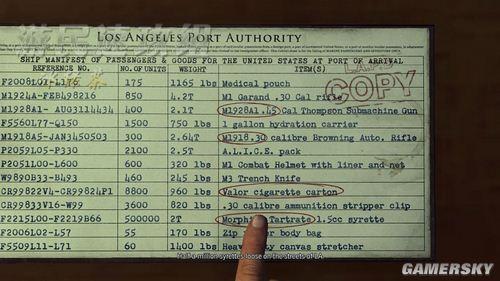 LOS ANGELES PORT AUTHORITY
SHIP MANIFEST OF PASSENGERS & GOODS FOR THE UNITED STATES AT PORT OF ARRIVAL
REFERENCE NO. NO.OF UNITS WEIGHT ITEM(S)
F2008L01-L176 175 1165 lbs Medical pouch
M1924A-FEB498216 850 4.2T M1 Garand .30 Cal rifle
COPY
M1928A1- AUG03114434 400 2.1T M1928A1.45 Cal Thompson Submachine Gun
F5560L77-Q150 1500 750 lbs 1 gallon hydration carrier
M1918A5-JAN3450503 300 2.64T M1918.30 calibre Browning Auto. Rifle
P2059L05-P330 2100 2.5T A.L.I.C.E. pack
P2051L00-L600 600 320 lbs M1 Combat Helmet with liner and net
W9890B33-B493 460 245 lbs M3 Trench Knife
CR99822V4-CR99824P1 8800 960 lbs Valor cigarette carton
CR99833V16-W99 3600 820 lbs .30 calibre ammunition stripper clip
F2215L00-F2219B66 500000 2T Morphine Tartrate 1.5cc syrette
F2006L02-L57 55 170 lbs Zip body bag
F5509L11-L71 60 1400 lbs Heavy duty canvas stretcher
Half a million syrettes loose on the streets of LA.
GAMERSKY